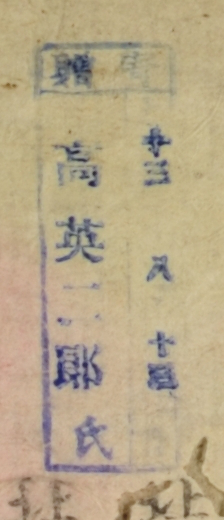 寄贈
廿三 八 十四
高英二郎氏